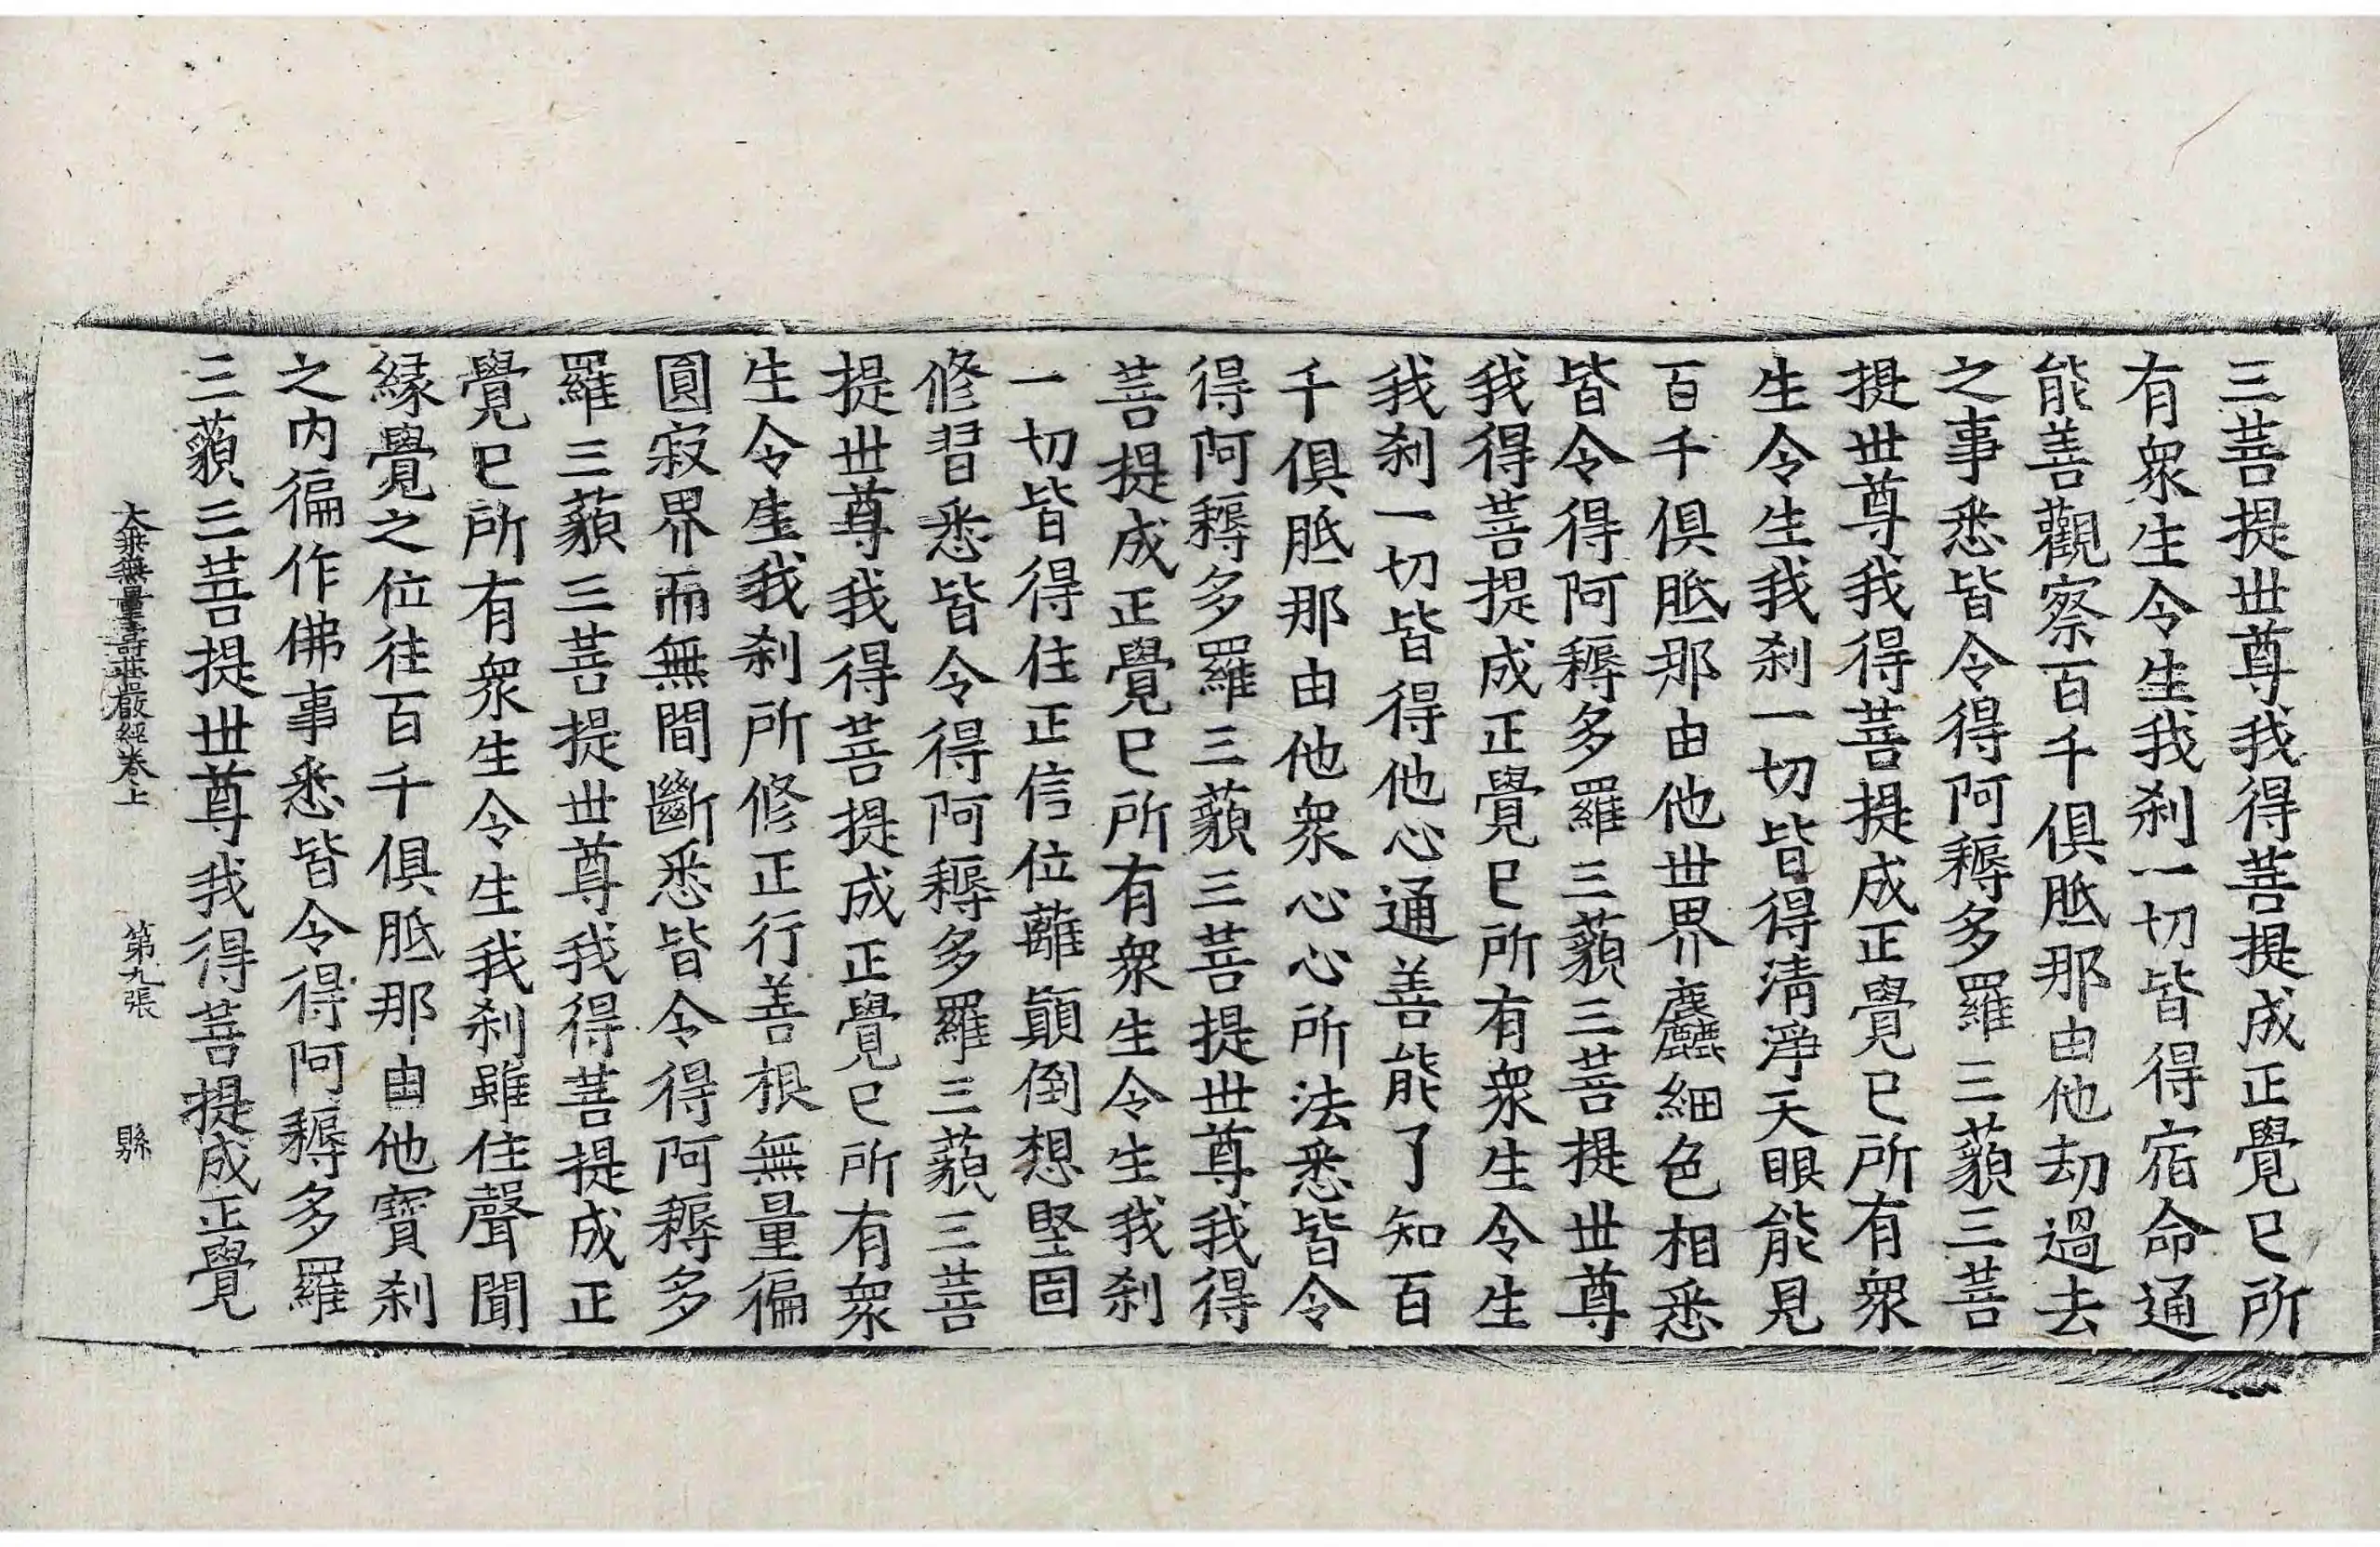 三菩提世尊我得菩提成正覺已所
有衆生令生我刹一切皆得宿命通
能善觀察百千俱胝那由他劫過去
之事悉皆令得阿耨多羅三藐三菩
提世尊我得菩提成正覺已所有衆
生令生我刹一切皆得清淨天眼能見
百千俱胝那由他世界麤細色相悉
皆令得阿耨多羅三藐三菩提世尊
我得菩提成正覺已所有衆生令生
我刹一切皆得他心通善能了知百
千俱胝那由他衆心心所法悉皆令
得阿耨多羅三藐三菩提世尊我得
菩提成正覺已所有衆生令生我刹
一切皆得住正信位離顚倒想堅固
修習悉皆令得阿耨多羅三藐三菩
提世尊我得菩提成正覺已所有衆
生令生我刹所修正行善根無量徧
圓寂界而無間斷悉皆令得阿耨多
羅三藐三菩提世尊我得菩提成正
覺已所有衆生令生我刹雖住聲聞
緣覺之位往百千俱胝那由他寶刹
之内徧作佛事悉皆令得阿耨多羅
三藐三菩提世尊我得菩提成正覺
大乘無量壽莊嚴經卷上 第九張 縣